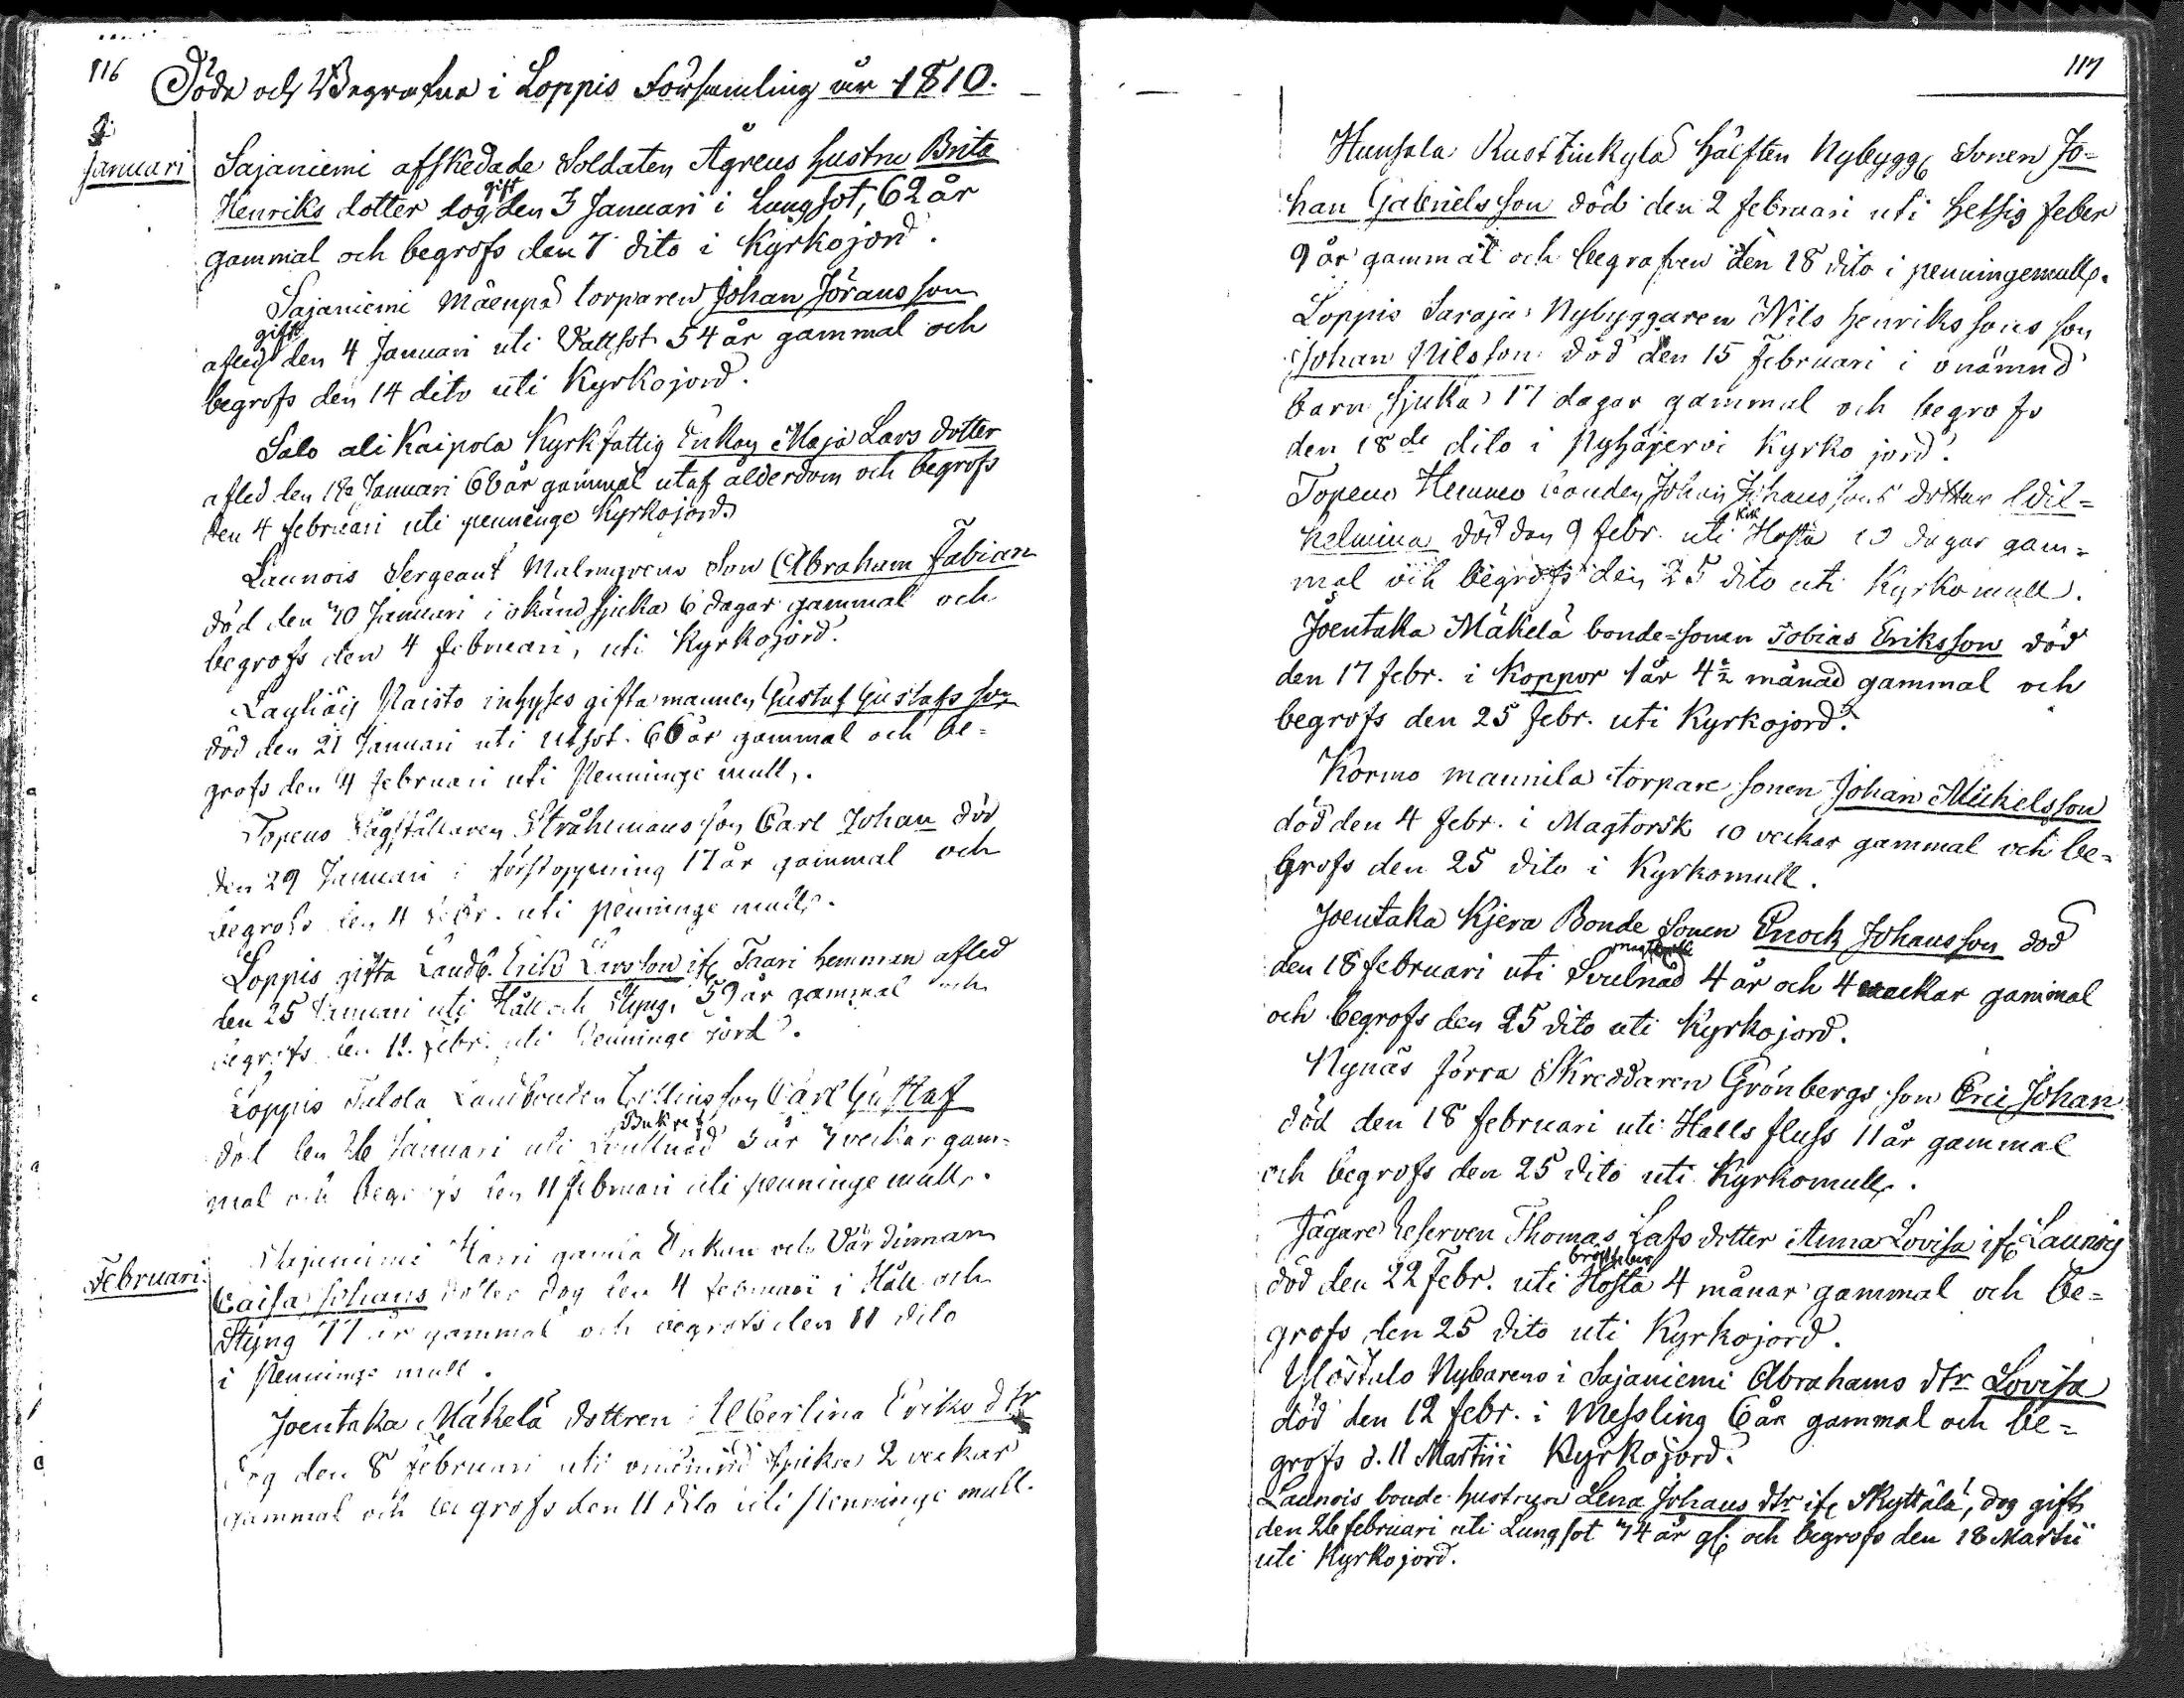 116
Döde och Begrafne i Loppis Församling år 1810.
Januari
Sajaniemi afskedade Soldaten Ågreus hustru Brita
Henriks dotter dog gift den 3 Januari i Lungsot, 62 år
gammal och begrofs den 7 dito i Kyrkojord.
Sajaniemi Mäenpä torparen Johan Jöransson
afled gift den 4 Januari uti Vattsot 54 år gammal och
begrofs den 14 dito uti Kyrkojord.
Salo ali Kaipola Kyrkfattig Enkan Maja Lars dotter
afled den 18 Januari 68 år gammal utaf ålderdom och begrofs
den 4 februari uti penninge Kyrkojord
Launois Sergeant Malmgrens Son Abraham Fabian
död den 20 Januari i okänd sjuka 6 dagar gammal och
begrofs den 4 februari, uti Kyrkojord.
Raisto inhyses gifta mannen Gustaf Gustafs son
död den 21 Januari uti Utsot 66 år gammal och be=
grofs den 4 februari uti Penninge mull.
Topeno Stråhlmans son Carl Johan död
den 29 Januari i förstoppning 17 år gammal och
begrofs den 4 Febr. uti penninge mull.
Loppis gifta Landb. Erik Larsson ifr Taari hemman afled
den 25 Januari uti Håll och Styng, 59 år gammal och
begrofs den 11. Febr. uti Penninge jord.
Loppis Tulola Landbonden son Carl Gustaf
död den 26 Januari uti 3 år 7 veckor gam=
mal och begrofs den 11 februari uti penninge mull.
Februari.
Sajaniemi Harri gamla Enkan och Värdinnan
Caisa Johans dotter dog den 4 februari i Håll och
Styng 77 år gammal och begrofs den 11 dito
i Penninge mull.
Joentaka Mäkelä dottren Albertina Eriks dtr
dog den 8 februari uti onämnd sjuka 2 veckor
gammal och begrofs den 11 dito uti penninge mull.
117
Hunsala Rustinkylä hälften Nybygg Sonen Jo=
han Gabrielsson död den 2 februari uti hetsig feber
9 år gammal och begrafven den 18 dito i penningemull.
Loppis Saraja Nybyggaren Nils Henrikssons son
Johan Nilsson död den 15 Februari i onämnd
barn sjuka 17 dagar gammal och begrofs
den 18de dito i Pyhäjervi Kyrko jord.
Topeno Hemmo bonden Johan Johanssons dotter Wil=
helmina död den 9 febr. uti Kik Hosta 10 dagar gam=
mal och begrofs den 25 dito uti Kyrkomull.
Joentaka Mäkelä bonde=sonen Tobias Eriksson död
den 17 febr. i Koppor 1 år 4½ månad gammal och
begrofs den 25 febr. uti Kyrkojord.
Kormo mannila torpare sonen Johan Mickelsson
död den 4 febr. i Magtorsk 10 veckor gammal och be=
grofs den 25 dito i Kyrkomull.
Joentaka Kjera Bonde Sonen Enoch Johansson död
den 18 februari uti Svulnad 4 år och 4 veckor gammal
och begrofs den 25 dito uti Kyrkojord.
Nynäs Jörra Skreddaren Grönbergs son Eric Johan
död den 18 februari uti Halls fluss 11 år gammal
och begrofs den 25 dito uti Kyrkomull.
Jägare Reserven Thomas Lafs dotter Anna Lovisa ifr Launois
död den 22 Febr. uti bröstfeber Hosta 4 månar gammal och be=
grofs den 25 dito uti Kyrkojord.
Ylöstalo Nybarens i Sajaniemi Abrahams dtr Lovisa
död den 12 febr. i Messling 6 år gammal och be=
grofs d. 11 Martii Kyrkojord.
Launois bonde hustrun Lena Johans dtr ifr Skyttälä, dog gift
den 26 februari uti Lungsot 74 år gl. och begrofs den 18 Martii
uti Kyrkojord.